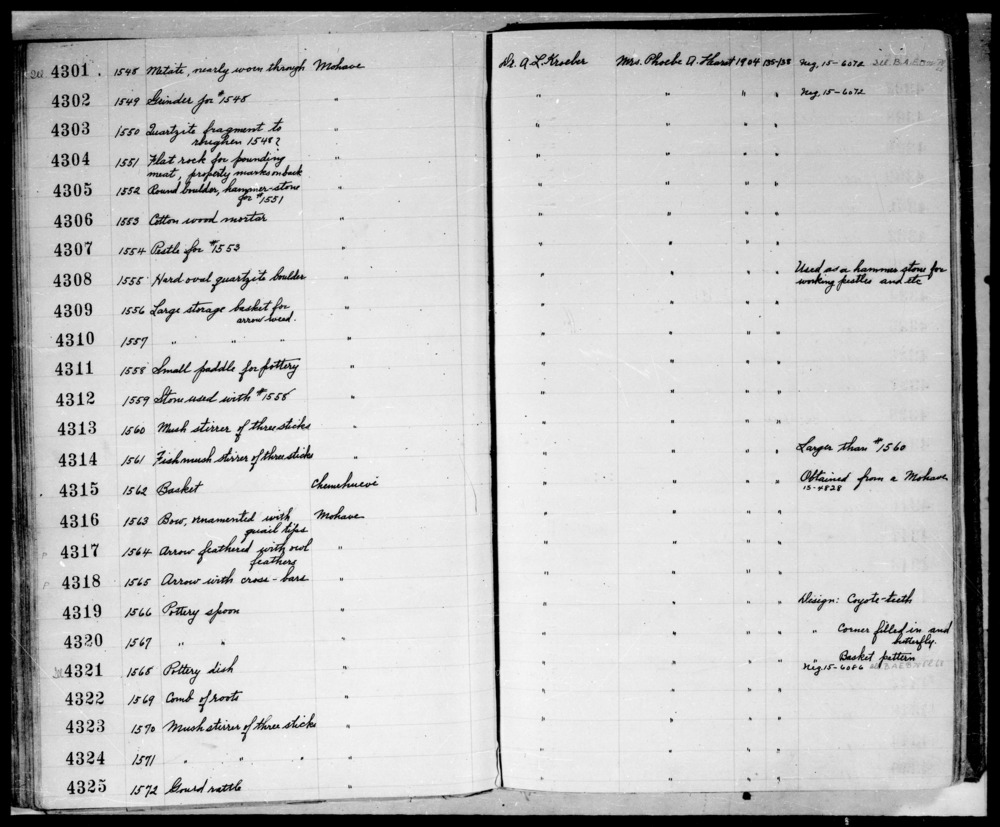 4301 . 1548 Metate, nearly worn through Mohave Dr. A. L. Kroeber Mrs. Phoebe A. Hearst 1904 135-138 Neg. 15-6072
4302 1549 Grinder for #1548 " " " " " Neg. 15-6072
4303 1550 Quartzite fragment to " " " " "
roughen 1548?
4304 1551 Flat rock for pounding " " " " "
meat, property marks on back
4305 1552 Round boulder, hammer-stone " " " " "
for #1551
4306 1553 Cotton wood mortar " " " " "
4307 1554 Pestle for #1553 " " " " "
4308 1555 Hard oval quartzite boulder " " " " " Used as a hammer stone for
working pestles and etc
4309 1556 Large storage basket for " " " " "
arrow-weed.
4310 1557 " " " " " " " "
4311 1558 Small paddle for pottery " " " " "
4312 1559 Stone used with #1558 " " " " "
4313 1560 Mush stirrer of three sticks " " " " "
4314 1561 Fish mush stirrer of three sticks " " " " " Larger than #1560
4315 1562 Basket Chemehuevi " " " " Obtained from a Mohave
15-4828
4316 1563 Bow, ornamented with Mohave " " " "
quail tips
P 4317 1564 Arrow feathered with owl " " " " "
feathers
P 4318 1565 Arrow with cross-bars " " " " "
4319 1566 Pottery spoon " " " " " Design: Coyote-teeth
4320 1567 " " " " " " " " Corner filled in and
butterfly.
4321 1568 Pottery dish " " " " " " Basket pattern
Neg. 15-6086
4322 1569 Comb of roots " " " " "
4323 1570 Mush stirrer of three sticks " " " " "
4324 1571 " " " " " " " "
4325 1572 Gourd rattle " " " " "